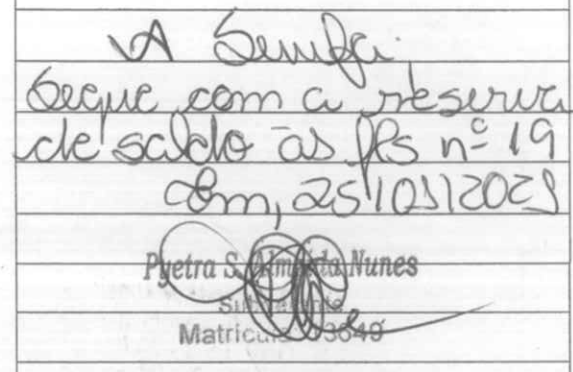 A Semfa.
Segue com a reserva
de saldo às fls nº 19
Em, 25/01/2021
Pyetra S. Almeida Nunes
Matrícula 3649